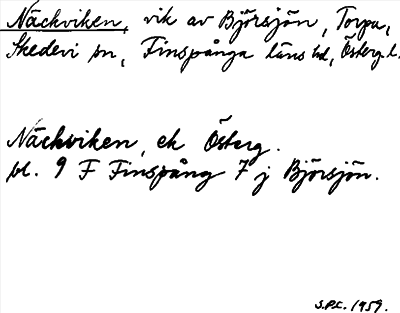 Näckviken, vik av Björsjön, Torpa,
Skedevi sn, Finspånga läns hd, Österg. l.
Näckviken, ek Österg.
bl. 9 F Finspång 7 j Björsjön.
S.P.L. 1959.